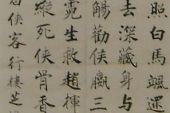 照白馬颯遝
去深藏身与
觴勸侯嬴三
霓生救趙揮
縱死俠骨香
俠客行